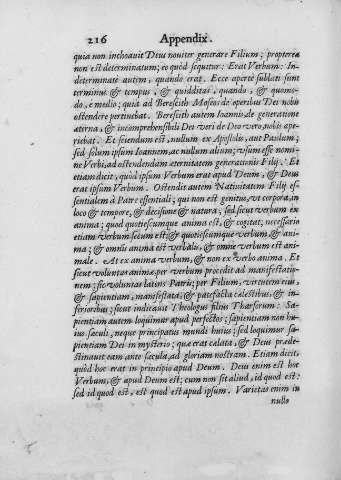 216 Appendix.
quia non inchoavit Deus noviter generare Filium; propterea
non est determinatum; eo quòd sequitur: Erat Verbum: In-
determinatè autem, quando erat. Ecce apertè sublati sunt
termini & tempus, & quidditas, quando, & quomo-
do, è medio; quia ad Berescith Moseos de operibus Dei nobis
ostendere pertinebat. Berescith autem Ioannis, de generatione
æterna, & incomprehensibili Dei veri de Deo vero, nobis ape-
riebat. Et sciendum est, nullum ex Apostolis, aut Paulum;
sed solum ipsum Ioannem, ac nullum alium; usum esse nomi-
ne Verbi, ad ostendendam æternitatem generationis Filij. Et
etiam dicit, quòd ipsum Verbum erat apud Deum, & Deus
erat ipsum Verbum. Ostendit autem Nativitatem Filij es-
sentialem à Patre essentiali; qui non est genitus, ut corpora, in
loco & tempore, & decisione & natura; sed sicut verbum ex
anima; quod quotiescumque anima est, & cogitat; necessario
etiam verbum secum est; & quotiescumque verbum, & ani-
ma; & omnis anima est verbalis, & omne verbum est ani-
male. At ex anima verbum, & non ex verbo anima. Et
sicut voluntas animæ per verbum procedit ad manifestatio-
nem; sic voluntas latens Patris; per Filium, virtutem eius,
& sapientiam, manifestata, & patefacta cælestibus, & in-
ferioribus; sicut indicavit Theologus filius Tharsorum: Sa-
pientiam autem loquimur apud perfectos; sapientiam non hu-
ius sæculi, neque principatus mundi huius; sed loquimur sa-
pientiam Dei in mysterio; quæ erat celata, & Deus præde-
stinavit eam ante sæcula, ad gloriam nostram. Etiam dicit,
quòd hoc erat in principio apud Deum. Deus enim est hoc
Verbum, & apud Deum est; cum non sit aliud, id quod est:
sed id quod est, est quod est apud ipsum. Varietas enim in
nullo